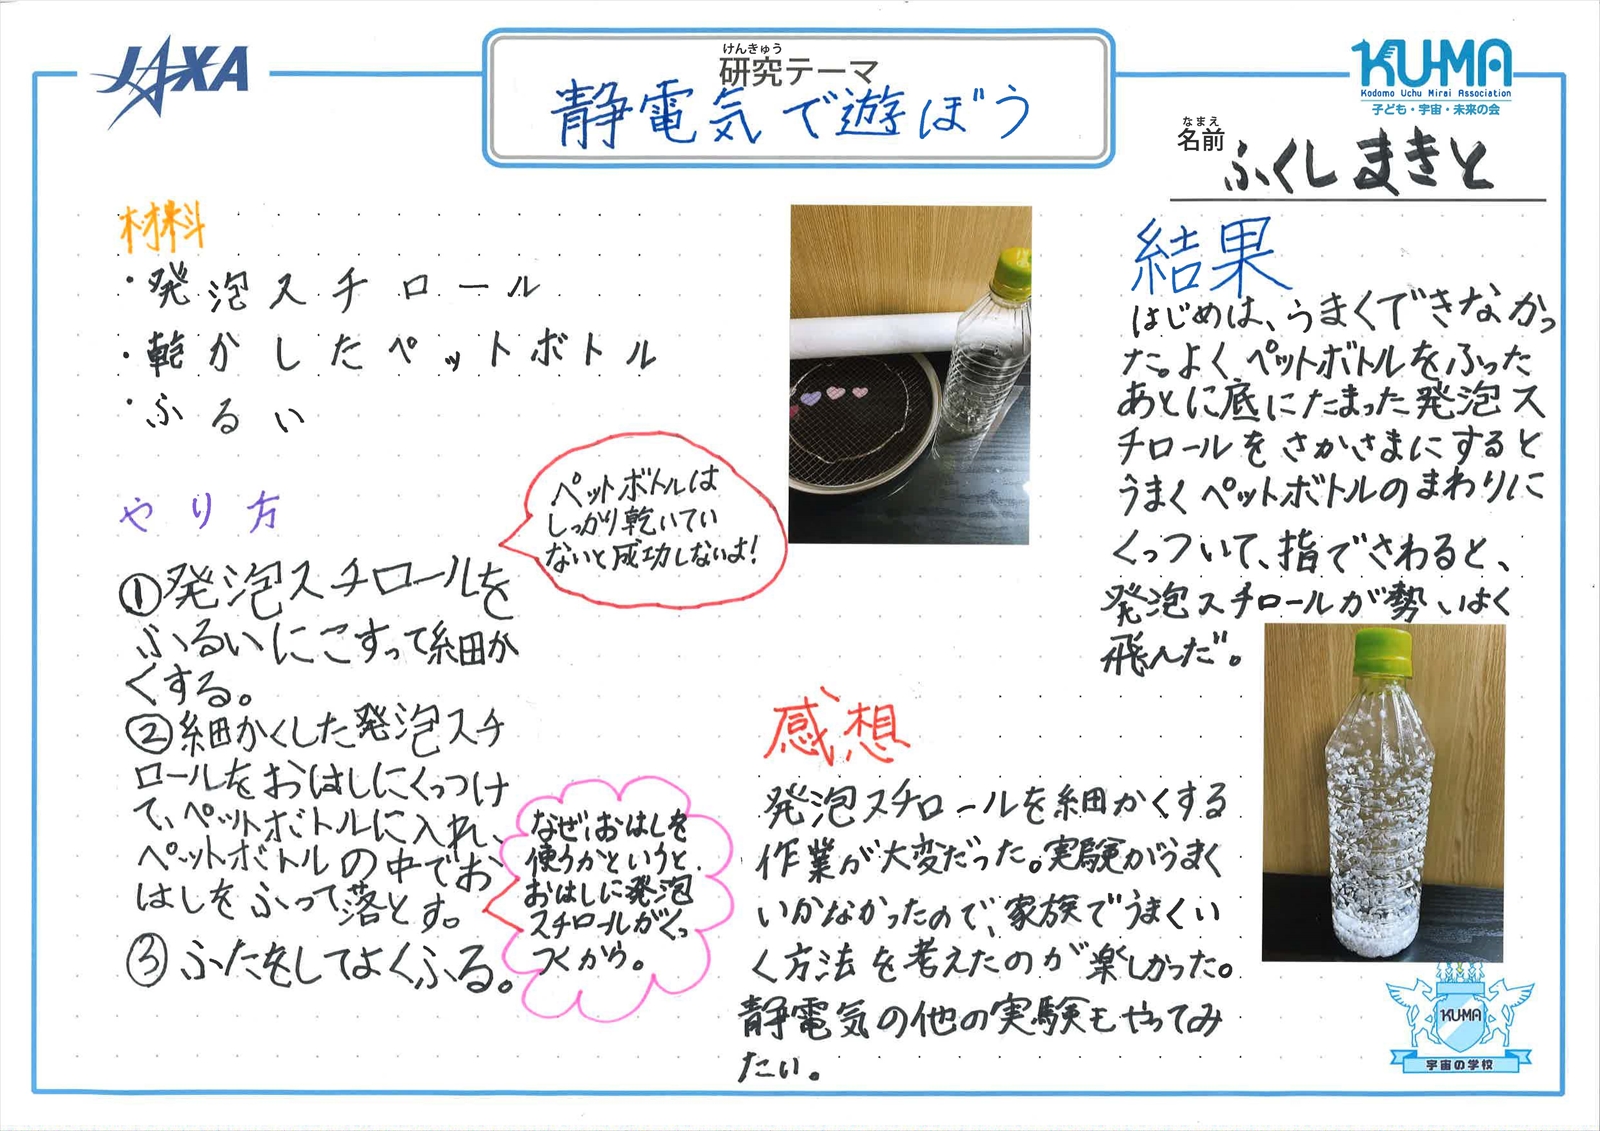 JAXA
けんきゅう
研究テーマ
静電気で遊ぼう
KUMA
Kodomo Uchu Mirai Association
子ども・宇宙・未来の会
なまえ
名前
ふくしまきと
材料
・発泡スチロール
・乾かしたペットボトル
・ふるい
やり方
①発泡スチロールを
ふるいにこすって細か
くする。
②細かくした発泡スチ
ロールをおはしにくっつけ
て、ペットボトルに入れ、
ペットボトルの中でお
はしをふって落とす。
③ふたをしてよくふる。
ペットボトルは
しっかり乾いてい
ないと成功しないよ!
なぜ、おはしを
使うかというと、
おはしに発泡
スチロールがくっ
つくから。
結果
はじめは、うまくできなかっ
た。よくペットボトルをふった
あとに底にたまった発泡ス
チロールをさかさまにすると
うまくペットボトルのまわりに
くっついて、指でさわると、
発泡スチロールが勢いよく
飛んだ。
感想
発泡スチロールを細かくする
作業が大変だった。実験がうまく
いかなかったので、家族でうまくい
く方法を考えたのが楽しかった。
静電気の他の実験もやってみ
たい。
KUMA
宇宙の学校